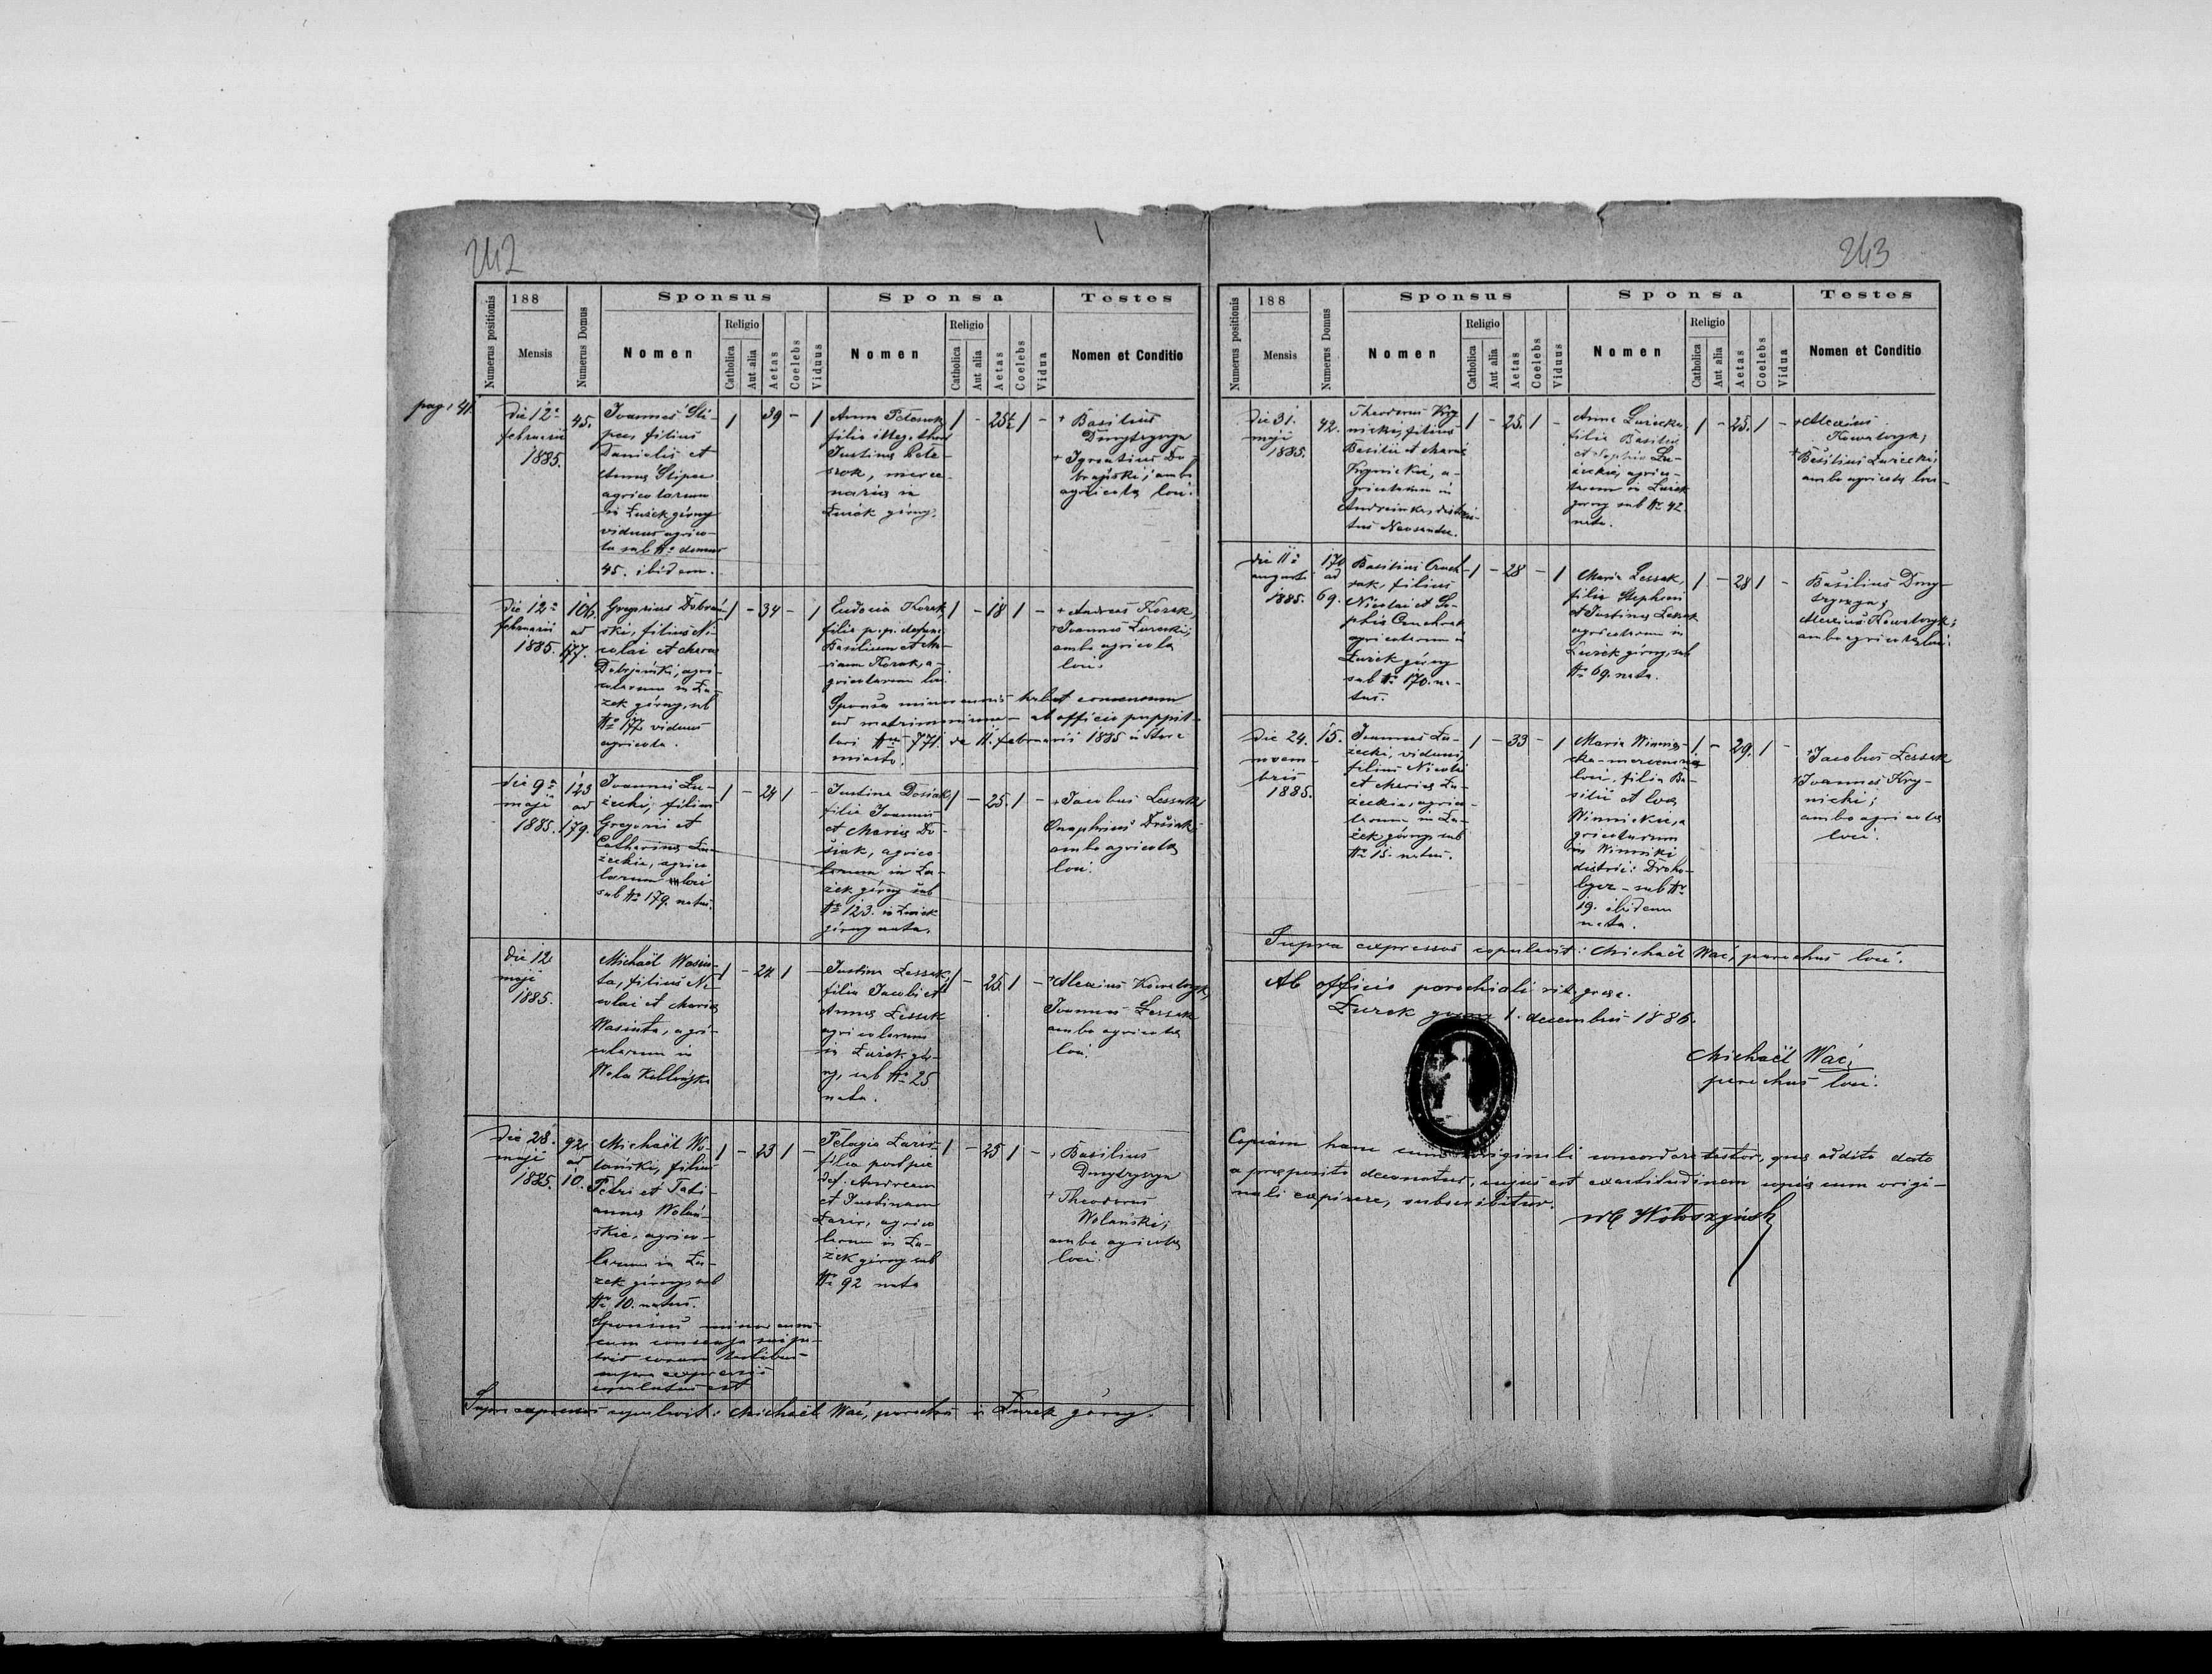 242
Numerus positionis
188
Mensis
Numerus Domus
Sponsus
Nomen
Religio
Catholica
Aut alia
Aetas
Coelebs
Viduus
Sponsa
Nomen
Religio
Catholica
Aut alia
Aetas
Coelebs
Vidua
Testes
Nomen et Conditio
pag: 41.
Die 12a
februarii
1885.
45.
Joannes Sli-
pec, filius
Danielis et
Annae Slipec
agricolarum
in Łużek górny
viduus agrico-
la sub No domus
45. ibidem.
1
39 - 1
Anna
filia illeg. thori
Justinae
mercenaria in
Łużek górny.
1 - 25½ 1 -
+ Basilius
Dmytryszyn
+ Ignatius Do-
brzański; ambo
agricolae loci.
Die 12a
februarii
1885.
106.
ad
177.
Gregorius Dobrzań-
ski, filius Ni-
colai et Mariae
Dobrzański, agri-
colarum in Łu-
żek górny, sub
No 177. viduus
agricola.
1 - 34 - 1
Eudocia Korak,
filia p. p. defunc.
Basilium et Ma-
riam Korak, a-
gricolarum loci.
1 - 18 1 -
+ Andreas Korak,
+ Joannes Łużecki;
ambo agricolae
loci.
Sponsa minorennis habet consensum
ad matrimonium - ab officio puppil-
lari Nro 771. de 11. februarii 1885 in Stare
miasto.
Die 9a
maji
1885.
123
ad
179.
Joannes Łu-
żecki, filius
Gregorii et
Catharinae Łu-
żeckie, agrico
larum loci
sub No 179. natus.
1 - 24 1 -
Justina Dosiak,
filia Joannis
et Mariae Do-
siak, agrico-
larum in Łu-
żek górny sub
No 123. in Łużek
górny nata.
1 - 25. 1 -
+ Jacobus Lessak
Onuphrius Dosiak;
ambo agricolae
loci.
Die 12
maji
1885.
Michaël Wasiu-
ta, filius Ni-
colai et Mariae
Wasiuta, agri-
colarum in
Wola Koblańska
1 - 24 1 -
Justina Lessak,
filia Jacobi et
Annae Lessak
agricolarum
in Łużek gór-
ny, sub No 25
nata.
1 - 25. 1 -
+ Alexius Kowalczyk,
Joannes Lessak
ambo agricolae
loci.
Die 28.
maji
1885.
92
ad
10.
Michaël Wo-
lański, filius
Petri et Tati-
annae Wolań-
skie, agrico-
larum in Łu-
żek górny sub
No 10. natus.
Sponsus minorennis
cum consensu sui pa-
tris coram testibus
supra expressis
copulatus est
1 - 23 1 -
Pelagia Łazir
filia post pie
def. Andream
et Justinam
Łazir, agrico
larum in Łu-
żek górny sub
No 92 nata
1 - 25 1 -
+ Basilius
Dmytryszyn
+ Theodorus
Wolański;
ambo agricolae
loci.
Supra expressos copulavit: Michaël Wać, parochus in Łużek górny.
243
Numerus positionis
188
Mensis
Numerus Domus
Sponsus
Nomen
Religio
Catholica
Aut alia
Aetas
Coelebs
Viduus
Sponsa
Nomen
Religio
Catholica
Aut alia
Aetas
Coelebs
Vidua
Testes
Nomen et Conditio
Die 31.
maji
1885.
42.
Theodorus Kry-
nicki, filius
Basilii et Mariae
Krynickie, a-
gricolarum in
Andreivka, distric-
tus Neosandec.
1 - 25. 1 -
Anna Łużecka,
filia Basilii
et Sophiae Łu-
żeckie, agrico-
larum in Łużek
górny sub No 42.
nata.
1 - 25. 1 -
+ Alexius
Kowalczyk;
+ Basilius Łużecki;
ambo agricolae loci-
Die 11a
augusti
1885.
170
ad
69.
Basilius
filius
Nicolai et So-
phiae
agricolarum in
Łużek górny
sub No 170. na-
tus.
1 - 28 - 1
Maria Lessak,
filia Stephani
et Justinae Lessak
agricolarum in
Łużek górny, sub
No 69. nata.
1 - 28 1 -
Basilius Dmy-
tryszyn;
Alexius Kowalczyk;
ambo agricolae loci.
Die 24.
novem-
bris
1885.
15.
Joannes Łu-
żecki, viduus,
filius Nicolai
et Mariae Łu-
żeckie, agrico-
larum in Łu-
żek górny sub
No 15. natus.
1 - 33 - 1
Maria Winnic-
ka - mercenaria
loci, filia Ba-
silii et Evae
Winnickie, a
gricolarum
in Winniki
district: Droho-
bycz - sub No
19. ibidem
nata.
1. - 29. 1 -
+ Jacobus Lessak
+ Joannes Kry-
nicki;
ambo agricolae
loci.
Supra expressos copulavit: Michaël Wać, parochus loci.
Ab officio parochiali rit. graec.
Łużek górny 1. decembris 1886.
Michaël Wać,
parochus loci.
Copiam hanc cum originali concordare testor, quae addito dato
a praeposito decanatus, cujus est exactitudinem copiae cum origi-
nali expirere, subscribitur.
Wołoszyński